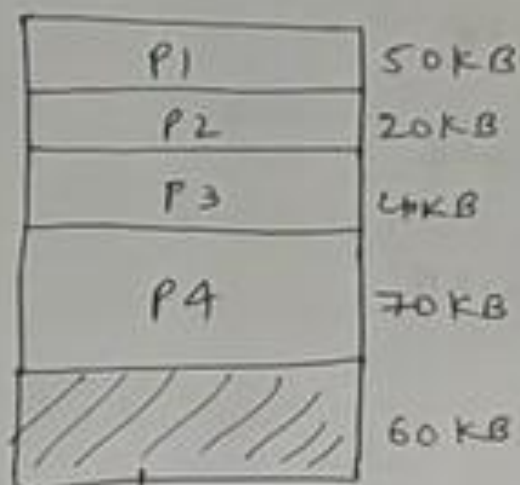 P1 50KB
P2 20KB
P3 4KB
P4 70KB
60 KB